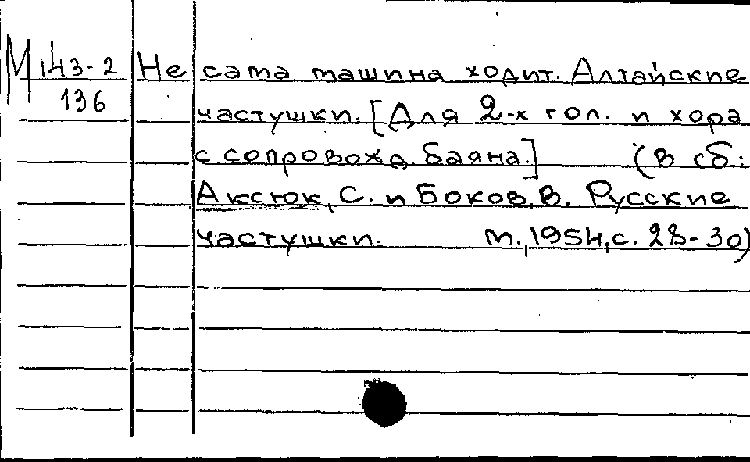 М 143-2 Не сама машина ходит. Алтайские
136 частушки. [Для 2-х гол. и хора
с сопровожд. баяна.] (в сб.:
Аксюк, С. и Боков, В. Русские
частушки. М., 1954, с. 28-30)